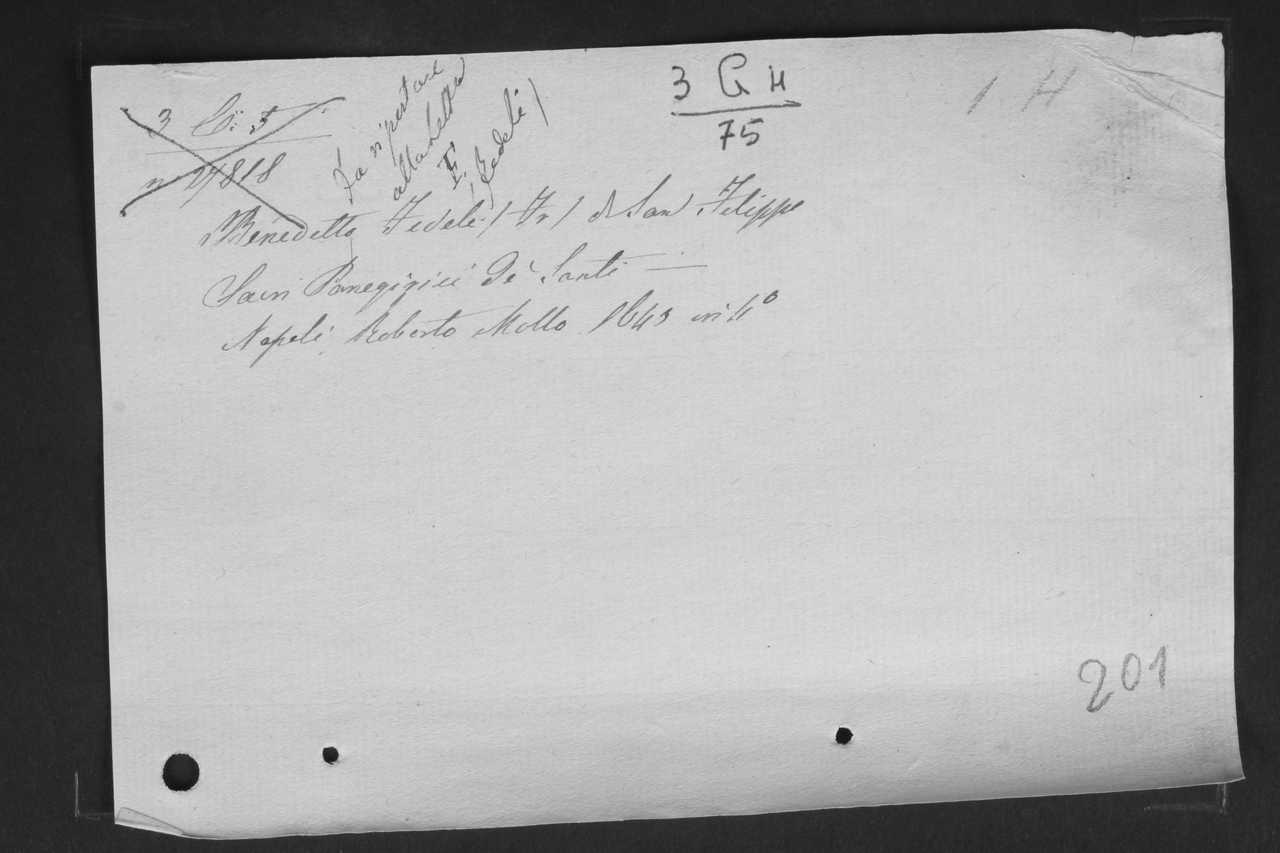 3 G 4
75
1 H
3
n 27818
Da riportare
alla Lettera
F.
(Fedele)
Benedetto Fedele / Fr / di San Filippo
Sacri Panegirici de' Santi —
Napoli Roberto Mollo 1643 in 4°
201